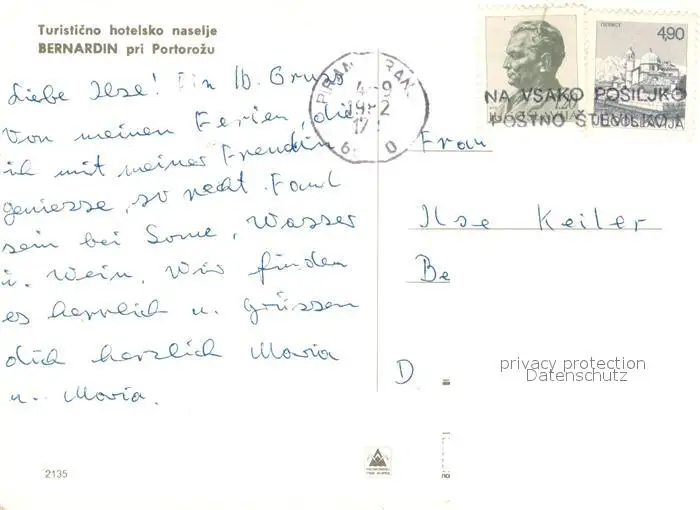 Turistično hotelsko naselje
BERNARDIN pri Portorožu
Liebe Ilse! Ein lb. Gruss
von meinen Ferien, die
ich mit meiner Freundin
geniesse, so recht Faul
sein bei Sonne, Wasser
u. Wein. Wir finden
es herrlich u. grüssen
dich herzlich Maria
u. Maria.
2135
PIRAN PIRAN
4,90
NA VSAKO POŠILJKO
POŠTNO ŠTEVILKO
Frau
Ilse Keiler
Be
D
privacy protection
Datenschutz